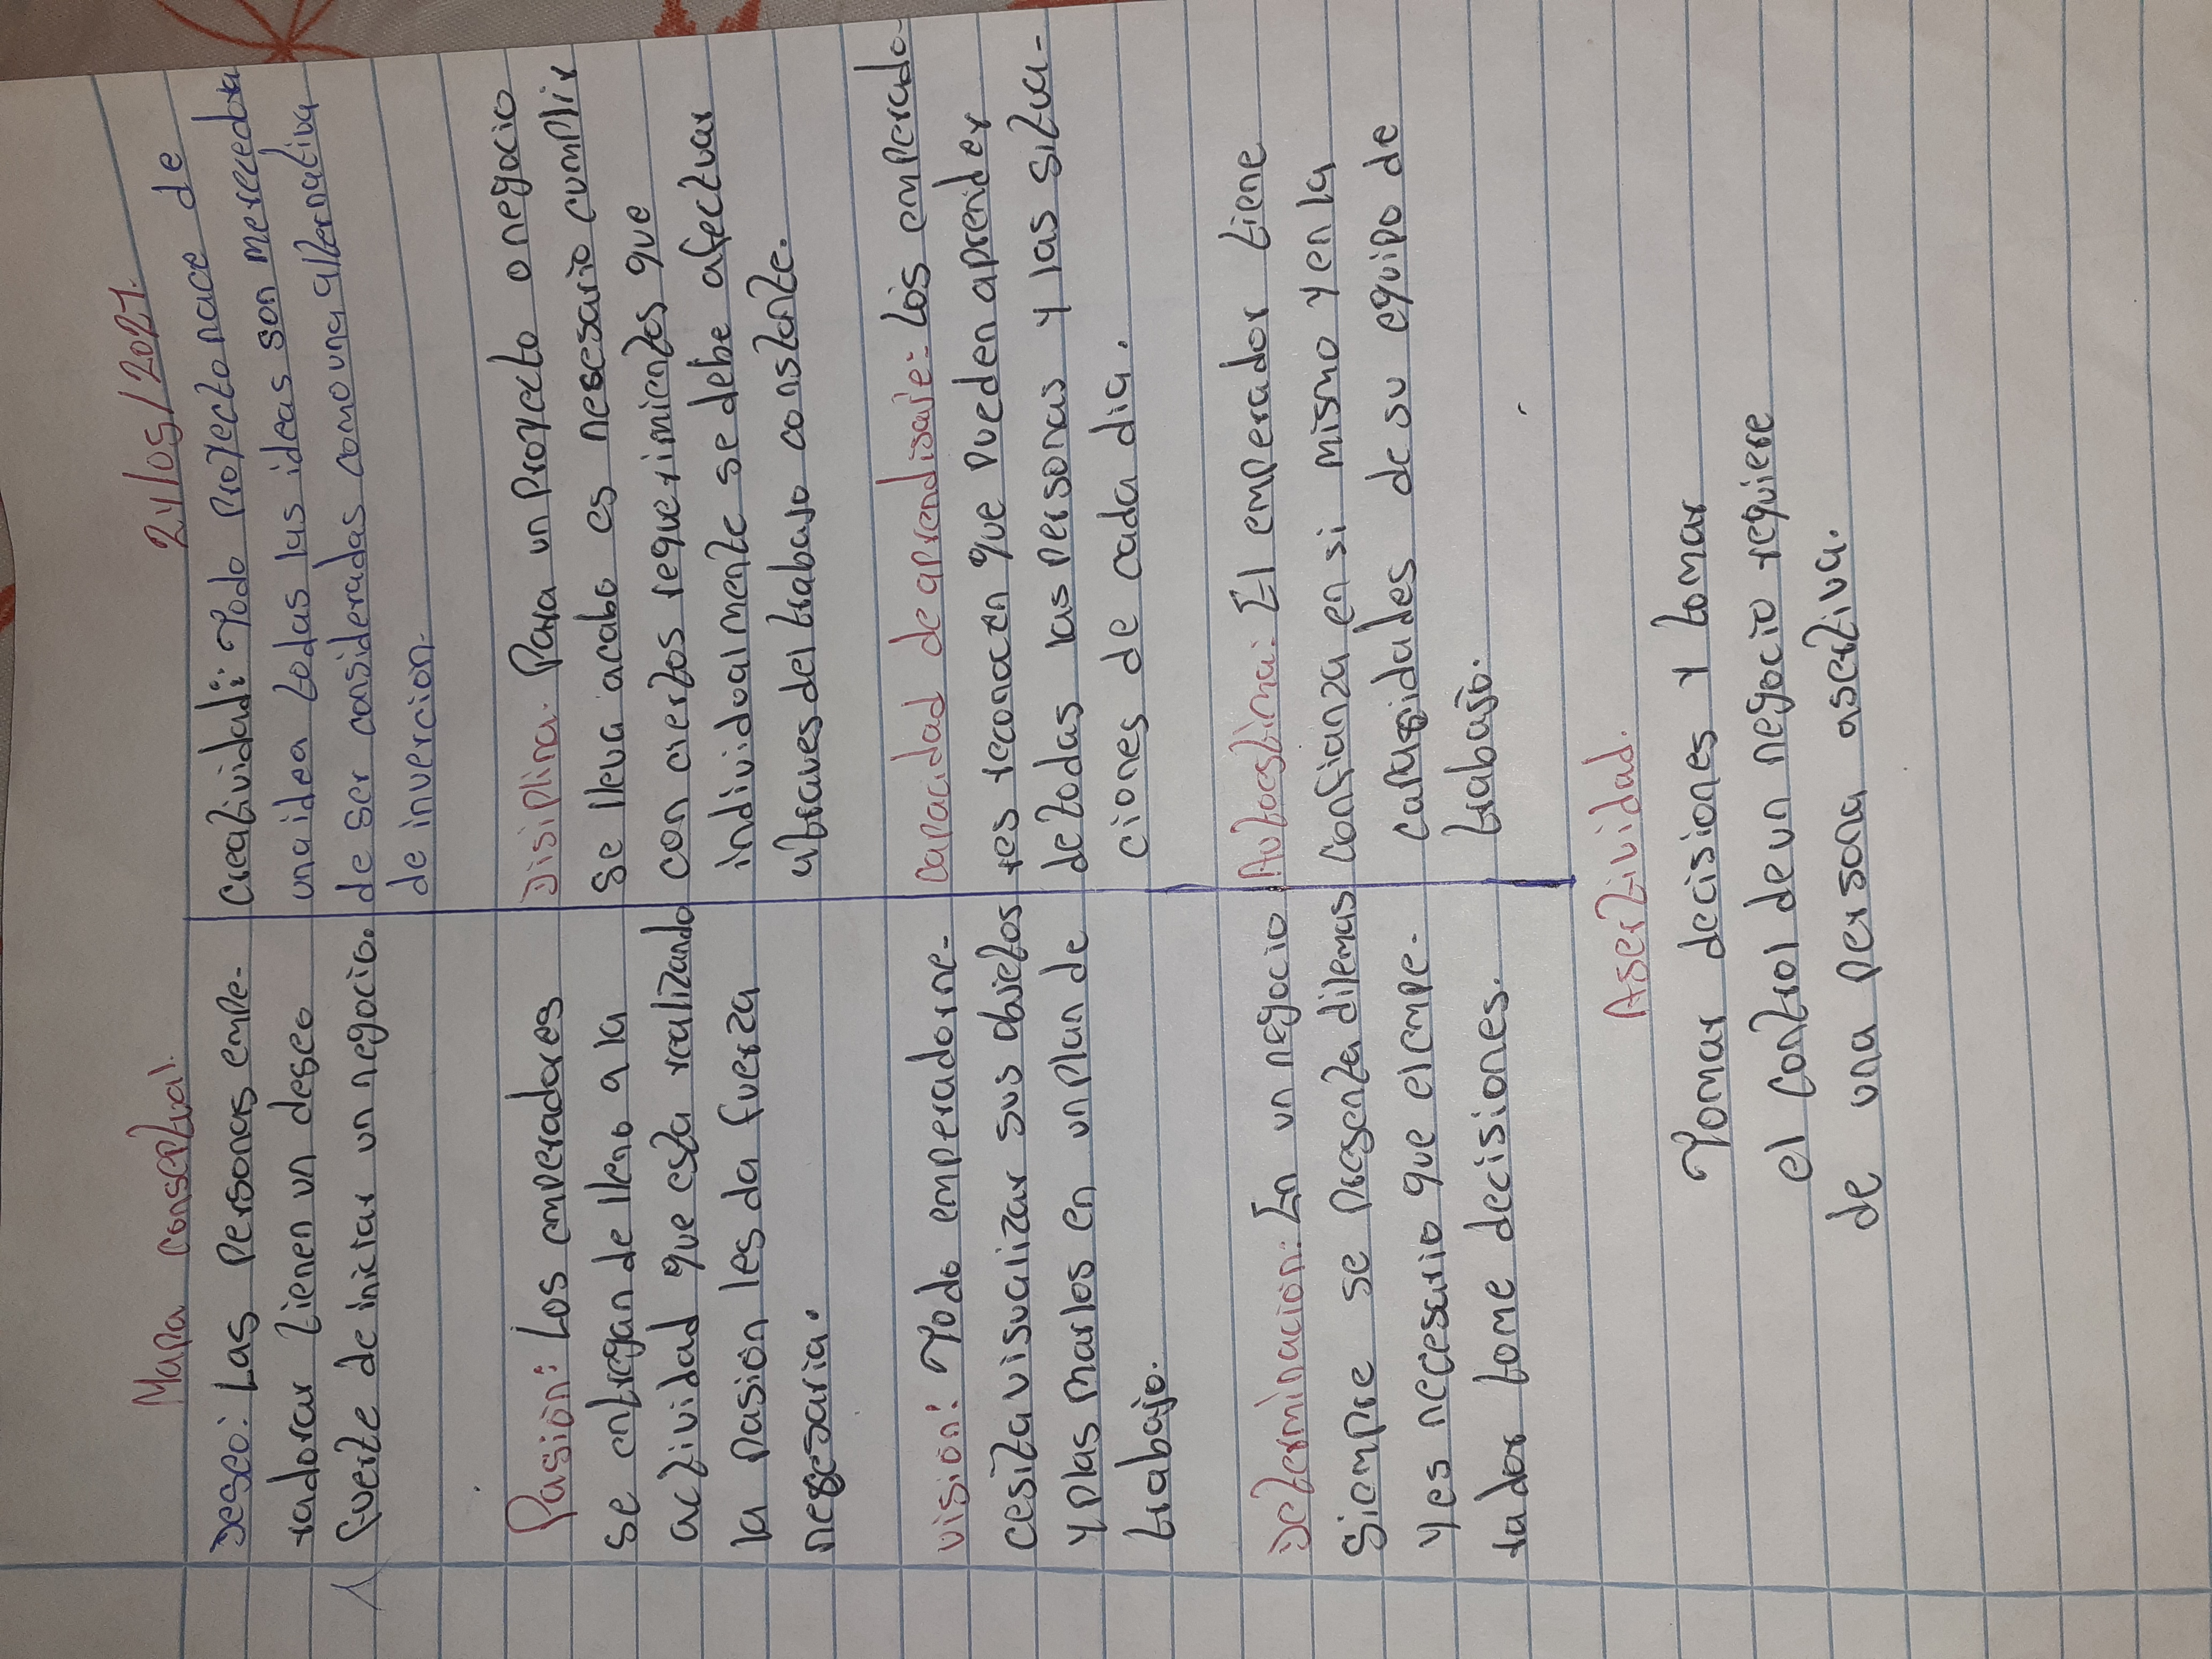 Mapa conseptual.
24/05/2021.
Deseo: Las personas empe-
radorar tienen un deseo
fuerte de iniciar un negocio.
Pasion: Los emperadores
se entregan de lleno a la
actividad que esta realizando
la pasion les da fuerza
necesaria.
vision: Todo emperadorne-
cesita visualizar sus objetos
y plas marlos en un plan de
trabajo.
Determinacion: En un negocio
siempre se presenta dilemas
y es necesario que el empe-
rador tome decisiones.
Creatividad: Todo proyecto nace de
una idea todas las ideas son merecedora
de ser consideradas como una alternativa
de invercion.
Disiplina. Para un proyecto o negocio
se lleva acabo es nesesario cumplir
con ciertos requerimientos que
individualmente se debe afectuar
atraves del trabajo constante.
capacidad de aprendisaje: Los emperado-
res reconocen que pueden aprender
de todas las personas y las situa-
ciones de cada dia.
Autoestima: El emperador tiene
confianza en si mismo y en la
capasidades de su equipo de
trabajo.
Asertividad.
Tomar decisiones y tomar
el control de un negocio requiere
de una persona asertiva.